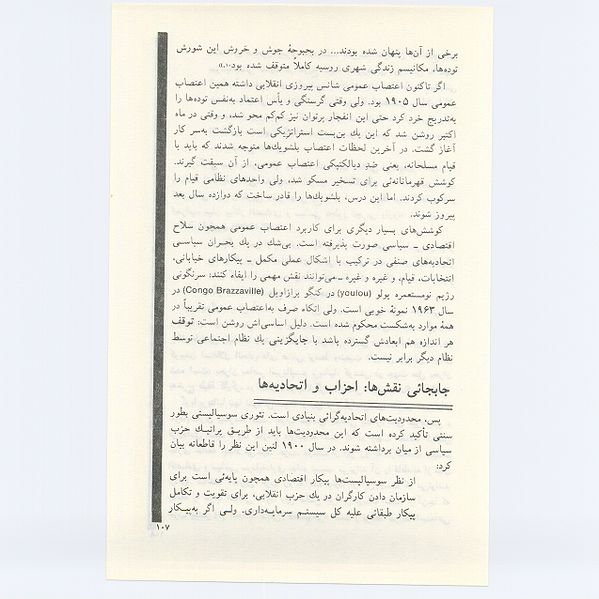 برخی از آن‌ها پنهان شده بودند... در بحبوحهٔ جوش و خروش این شورش
توده‌ها، مکانیسم زندگی شهری روسیه کاملاً متوقف شده بود.
اگر تاکنون اعتصاب عمومی شانس پیروزی انقلابی داشته همین اعتصاب
عمومی سال ۱۹۰۵ بود. ولی وقتی گرسنگی و یأس اعتماد به‌نفس توده‌ها را
به‌تدریج خرد کرد حتی این انفجار پرتوان نیز کم‌کم محو شد، و وقتی در ماه
اکتبر روشن شد که این یك بن‌بست استراتژیکی است بازگشت به‌سر کار
آغاز گشت. در آخرین لحظات اعتصاب بلشویك‌ها متوجه شدند که باید با
قیام مسلحانه، یعنی ضد دیالکتیکی اعتصاب عمومی، از آن سبقت گیرند.
کوشش قهرمانانه‌ئی برای تسخیر مسکو شد، ولی واحدهای نظامی قیام را
سرکوب کردند. اما این درس، بلشویك‌ها را قادر ساخت که دوازده سال بعد
پیروز شوند.
کوشش‌های بسیار دیگری برای کاربرد اعتصاب عمومی همچون سلاح
اقتصادی ـ سیاسی صورت پذیرفته است. بی‌شك در یك بحران سیاسی
اتحادیه‌های صنفی در ترکیب با اشکال عملی مکمل ـ پیکارهای خیابانی،
انتخابات، قیام، و غیره و غیره ـ می‌توانند نقش مهمی را ایفاء کنند: سرنگونی
رژیم نومستعمره یولو (youlou) در کنگو برازاویل (Congo Brazzaville) در
سال ۱۹۶۳ نمونهٔ خوبی است. ولی اتکاء صرف به‌اعتصاب عمومی تقریباً در
همهٔ موارد به‌شکست محکوم شده است. دلیل اساسی‌اش روشن است: توقف
هر اندازه هم ابعادش گسترده باشد با جایگزینی یك نظام اجتماعی توسط
نظام دیگر برابر نیست.
جابجائی نقش‌ها: احزاب و اتحادیه‌ها
پس، محدودیت‌های اتحادیه‌گرائی بنیادی است. تئوری سوسیالیستی بطور
سنتی تأکید کرده است که این محدودیت‌ها باید از طریق پراتیك حزب
سیاسی از میان برداشته شوند. در سال ۱۹۰۰ لنین این نظر را قاطعانه بیان
کرد:
از نظر سوسیالیست‌ها پیکار اقتصادی همچون پایه‌ئی است برای
سازمان دادن کارگران در یك حزب انقلابی، برای تقویت و تکامل
پیکار طبقاتی علیه کل سیستم سرمایه‌داری. ولی اگر به‌پیکار
۱۰۷